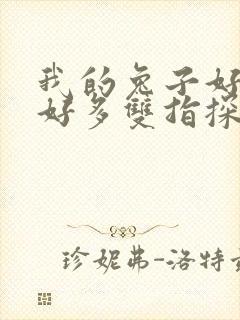 我的兔子好
好多雙指探
珍妮弗-洛特